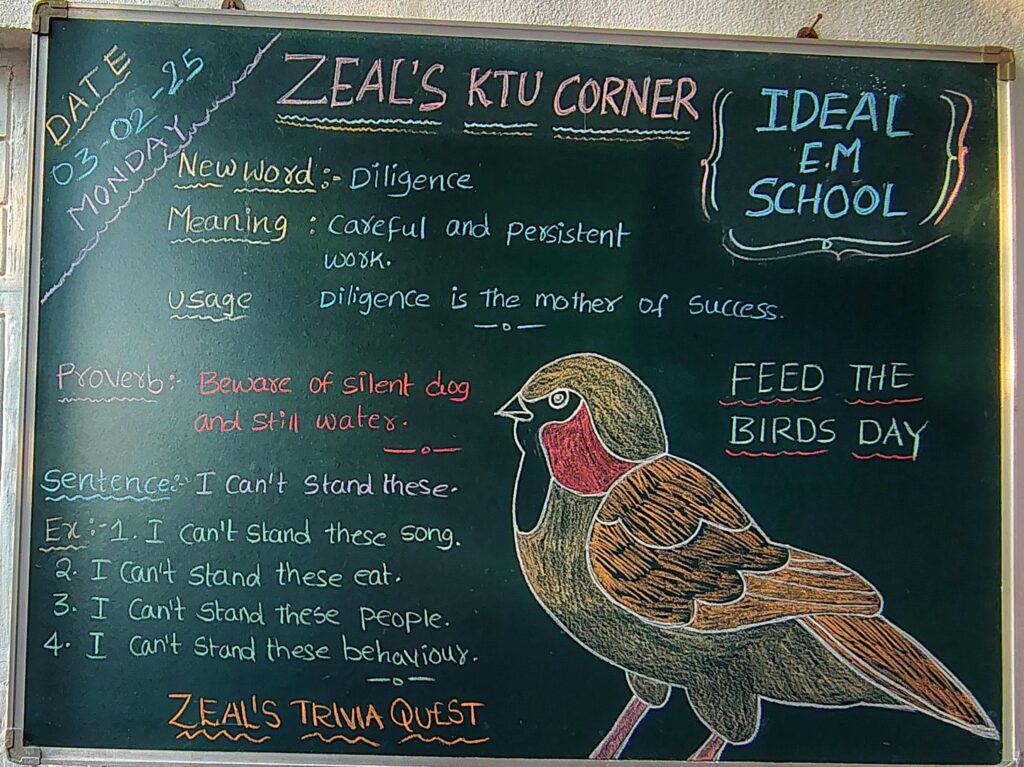 DATE
03-02-25
MONDAY
ZEAL'S KTU CORNER
IDEAL
E.M
SCHOOL
New word :- Diligence
Meaning : Careful and persistent
work.
Usage Diligence is the mother of success.
Proverb:- Beware of silent dog
and still water.
FEED THE
BIRDS DAY
Sentence:- I can't stand these.
Ex:- 1. I can't stand these song.
2. I can't stand these eat.
3. I can't stand these people.
4. I can't stand these behaviour.
ZEAL'S TRIVIA QUEST